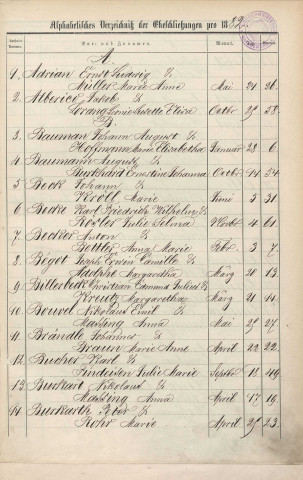 Alphabetisches Verzeichniß der Eheschließungen pro 1882
Vor- und Zunamen. Monat.
A.
1. Adrian Ernst Ludwig &
Müller Marie Anne Mai 21 26.
2. Alberici Jakob &
Elisa Octbr 25 58.
B.
3. Bauman Johann August &
Hoffmann Marie Elisabetha Januar 28 6
4. Baumann August &
Burkhard Ernestine Johanna Octbr 14 54
5. Bock Johann &
Kroll Marie Juni 3 31
6. Bocke Karl Friedrich Wilhelm &
Kogler Julie Selma Novbr 4 61
7. Becker Anton &
Bottler Anna Marie Febr. 3 7.
8. Begot Joseph Erwin Camille &
Adolphe Margaretha März 20 13
9. Billerbeck Christian Edmund Julius &
Kreutz Margaretha März 21 14
10. Bouvel Nikolaus Emil &
Massing Anna Mai 25 27.
11. Brändle Johannes &
Braun Marie Anne April 22 22.
12. Bucher Karl &
Findeisen Julie Marie Septbr 18 49
13. Burkart Nikolaus &
Massing Anna April 17 19
14. Burkarth Peter &
Rohr Marie April 25 23.